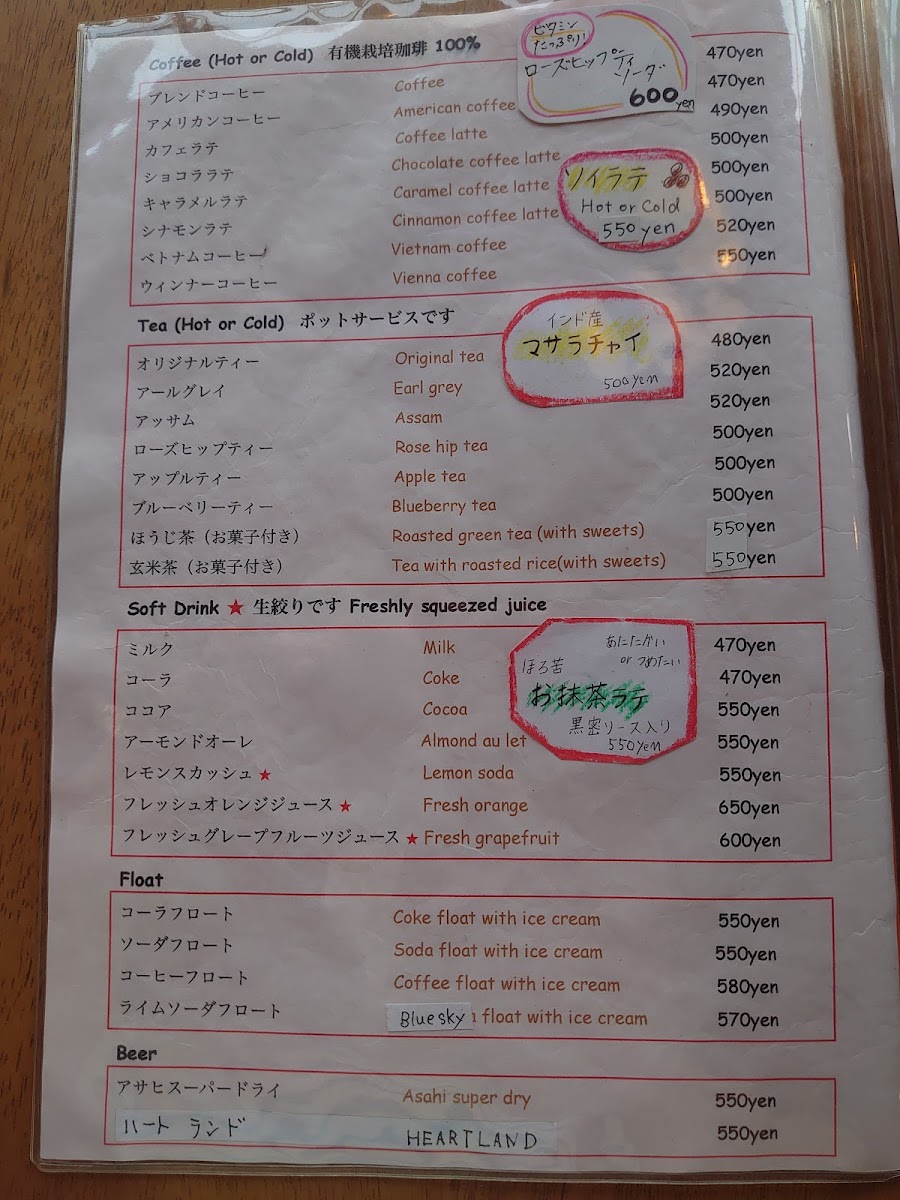 Coffee (Hot or Cold) 有機栽培珈琲 100%
ビタミン
たっぷり!
ローズヒップティ
ソーダ
600yen
ブレンドコーヒー Coffee 470yen
アメリカンコーヒー American coffee 470yen
カフェラテ Coffee latte 490yen
ショコララテ Chocolate coffee latte 500yen
キャラメルラテ Caramel coffee latte 500yen
シナモンラテ Cinnamon coffee latte 500yen
ベトナムコーヒー Vietnam coffee 520yen
ウィンナーコーヒー Vienna coffee 550yen
ソイラテ
Hot or Cold
550yen
Tea (Hot or Cold) ポットサービスです
インド産
マサラチャイ
500yen
オリジナルティー Original tea 480yen
アールグレイ Earl grey 520yen
アッサム Assam 520yen
ローズヒップティー Rose hip tea 500yen
アップルティー Apple tea 500yen
ブルーベリーティー Blueberry tea 500yen
ほうじ茶（お菓子付き） Roasted green tea (with sweets) 550yen
玄米茶（お菓子付き） Tea with roasted rice(with sweets) 550yen
Soft Drink ★ 生絞りです Freshly squeezed juice
ミルク Milk 470yen
コーラ Coke 470yen
ココア Cocoa 550yen
アーモンドオーレ Almond au let 550yen
レモンスカッシュ★ Lemon soda 550yen
フレッシュオレンジジュース★ Fresh orange 650yen
フレッシュグレープフルーツジュース★ Fresh grapefruit 600yen
あたたかい
or つめたい
ほろ苦
お抹茶ラテ
黒密ソース入り
550yen
Float
コーラフロート Coke float with ice cream 550yen
ソーダフロート Soda float with ice cream 550yen
コーヒーフロート Coffee float with ice cream 580yen
ライムソーダフロート Bluesky float with ice cream 570yen
Beer
アサヒスーパードライ Asahi super dry 550yen
ハートランド HEARTLAND 550yen